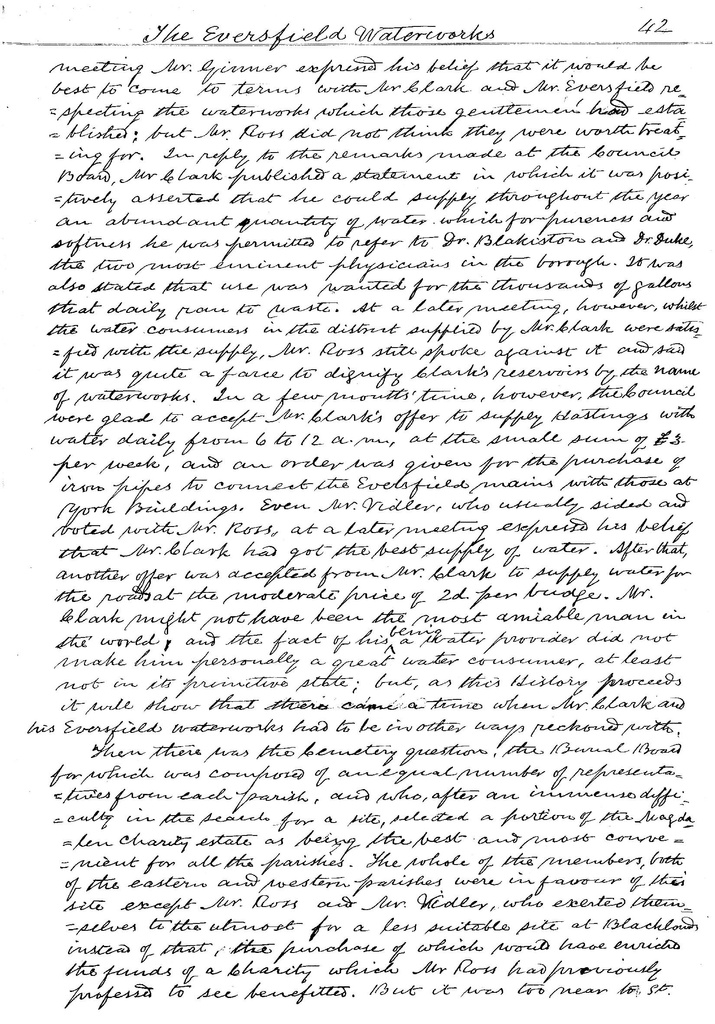 The Eversfield Waterworks 42
meeting Mr. Ginner expressed his belief that it would be
best to come to terms with Mr Clark and Mr. Eversfield re=
=specting the waterworks which those gentlemen had esta=
=blished; but Mr. Ross did not think they were worth treat=
=ing for. In reply to the remarks made at the Council
Board, Mr Clark published a statement in which it was posi=
=tively asserted that he could supply throughout the year
an abundant quantity of water which for pureness and
softness he was permitted to refer to Dr. Blakiston and Dr. Duke,
the two most eminent physicians in the borough. It was
also stated that use was wanted for the thousands of gallons
that daily ran to waste. At a later meeting, however, whilst
the water consumers in the district supplied by Mr. Clark were satis=
=fied with the supply, Mr. Ross still spoke against it and said
it was quite a farce to dignify Clark's reservoirs by the name
of waterworks. In a few months' time, however, the Council
were glad to accept Mr. Clark's offer to supply Hastings with
water daily from 6 to 12 a.m., at the small sum of £3
per week, and an order was given for the purchase of
iron pipes to connect the Eversfield mains with those at
York Buildings. Even Mr. Vidler, who usually sided and
voted with Mr. Ross, at a later meeting expressed his belief
that Mr. Clark had got the best supply of water. After that,
another offer was accepted from Mr. Clark to supply water for
the roads at the moderate price of 2d. per budge. Mr.
Clark might not have been the most amiable man in
the world; and the fact of his being a water provider did not
make him personally a great water consumer, at least
not in its primitive state; but, as this History proceeds
it will show that there came a time when Mr. Clark and
his Eversfield waterworks had to be in other ways reckoned with.
Then there was the Cemetery question, the Burial Board
for which was composed of an equal number of representa=
=tives from each parish, and who, after an immense diffi=
=culty in the search for a site, selected a portion of the Magda
=len Charity estate as being the best and most conve=
=nient for all the parishes. The whole of the members, both
of the eastern and western parishes were in favour of this
site except Mr. Ross and Mr. Vidler, who exerted them=
=selves to the utmost for a less suitable site at Blacklands
instead of that, the purchase of which would have enriched
the funds of a Charity which Mr Ross had previously
professed to see benefitted. But it was too near to St.